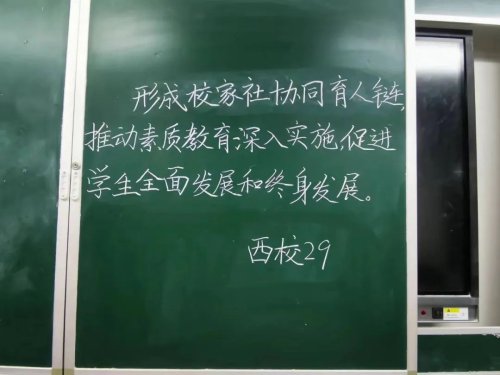 形成校家社协同育人链,
推动素质教育深入实施,促进
学生全面发展和终身发展。
西校29